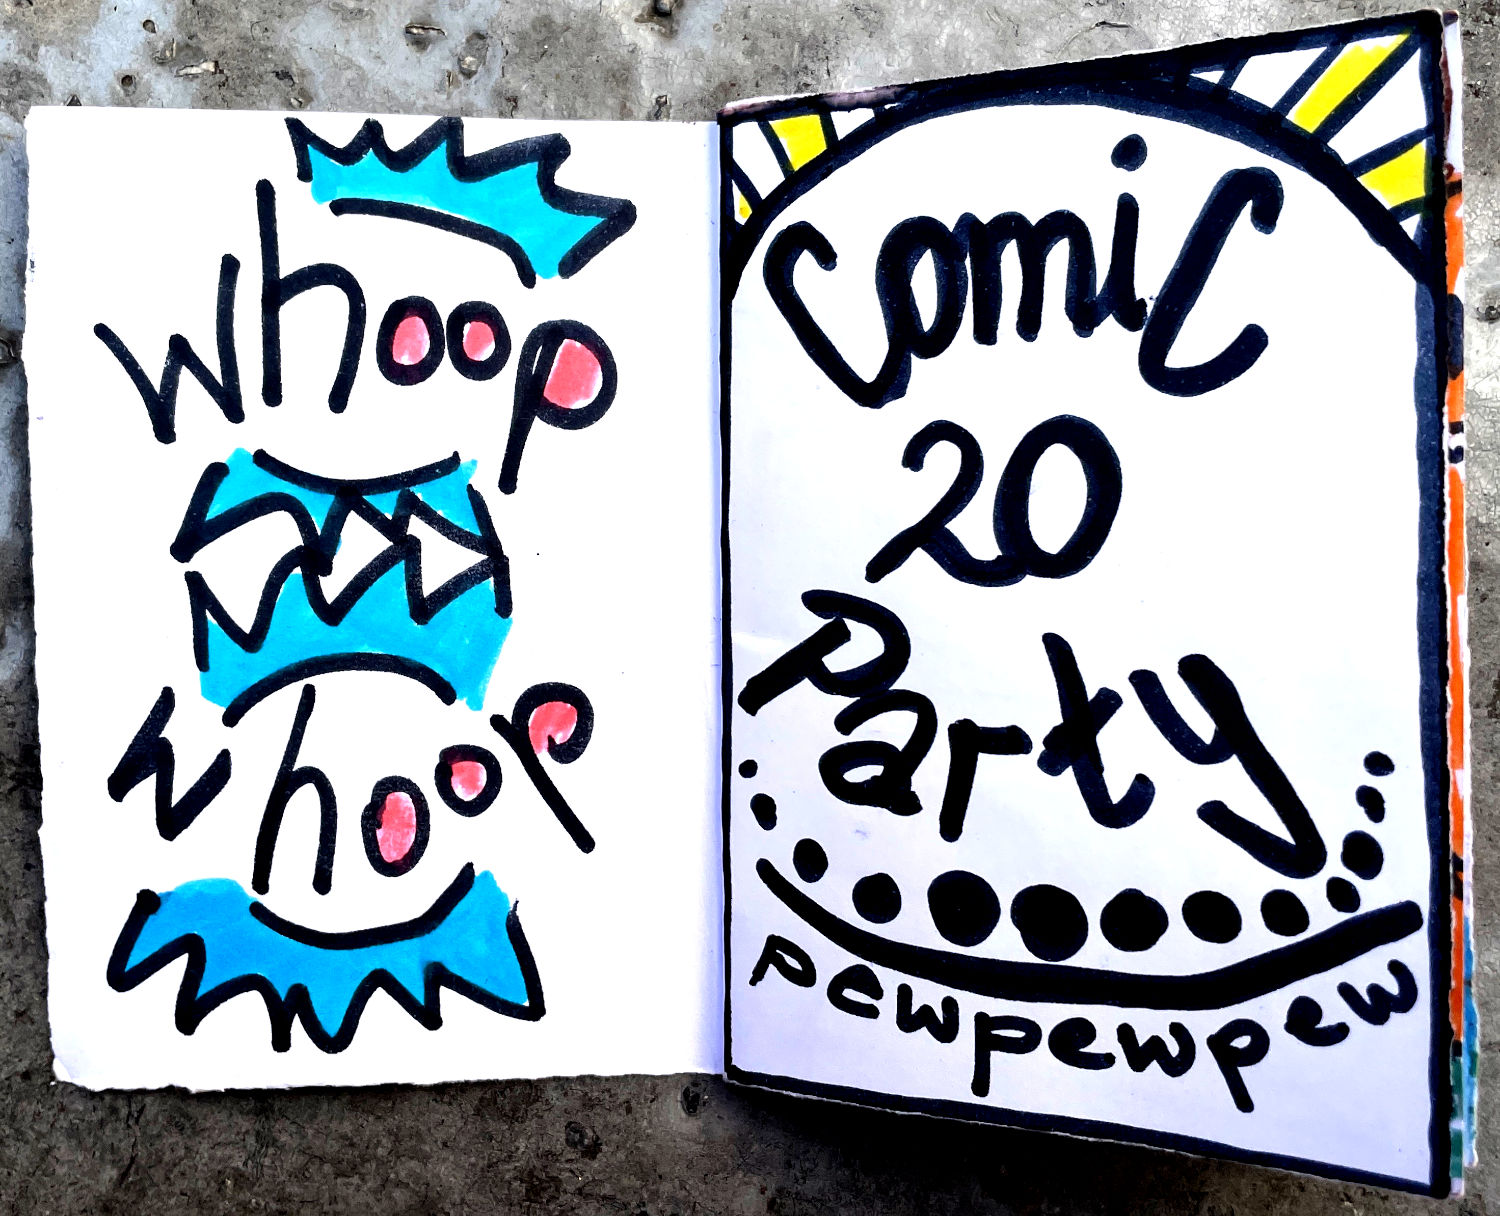 whoop
whoop
comic
20
Party
pewpewpew